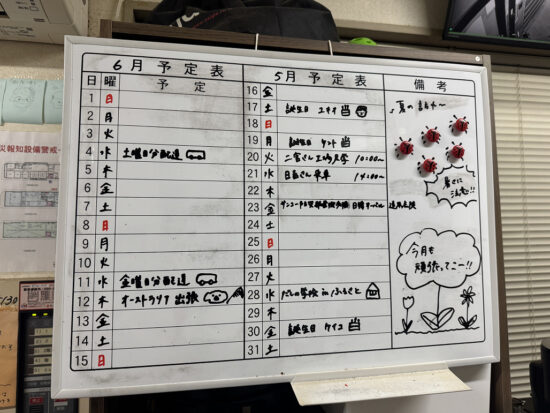 6月 予定表
日 曜 予定
1 日
2 月
3 火
4 水 土曜日分配達
5 木
6 金
7 土
8 日
9 月
10 火
11 水 金曜日分配達
12 木 オーストラリア出張
13 金
14 土
15 日
5月 予定表
16 金
17 土 誕生日 ユキイ
18 日
19 月 誕生日 ケント
20 火 二宮さん工場見学 10:00〜
21 水 14:00〜
22 木
23 金
24 土
25 日
26 月
27 火
28 水 だしの学校 in ふるさと
29 木
30 金 誕生日 ケイコ
31 土
備考
暑さに
注意!!
今月も
頑張ってこー!!
災報知設備警戒